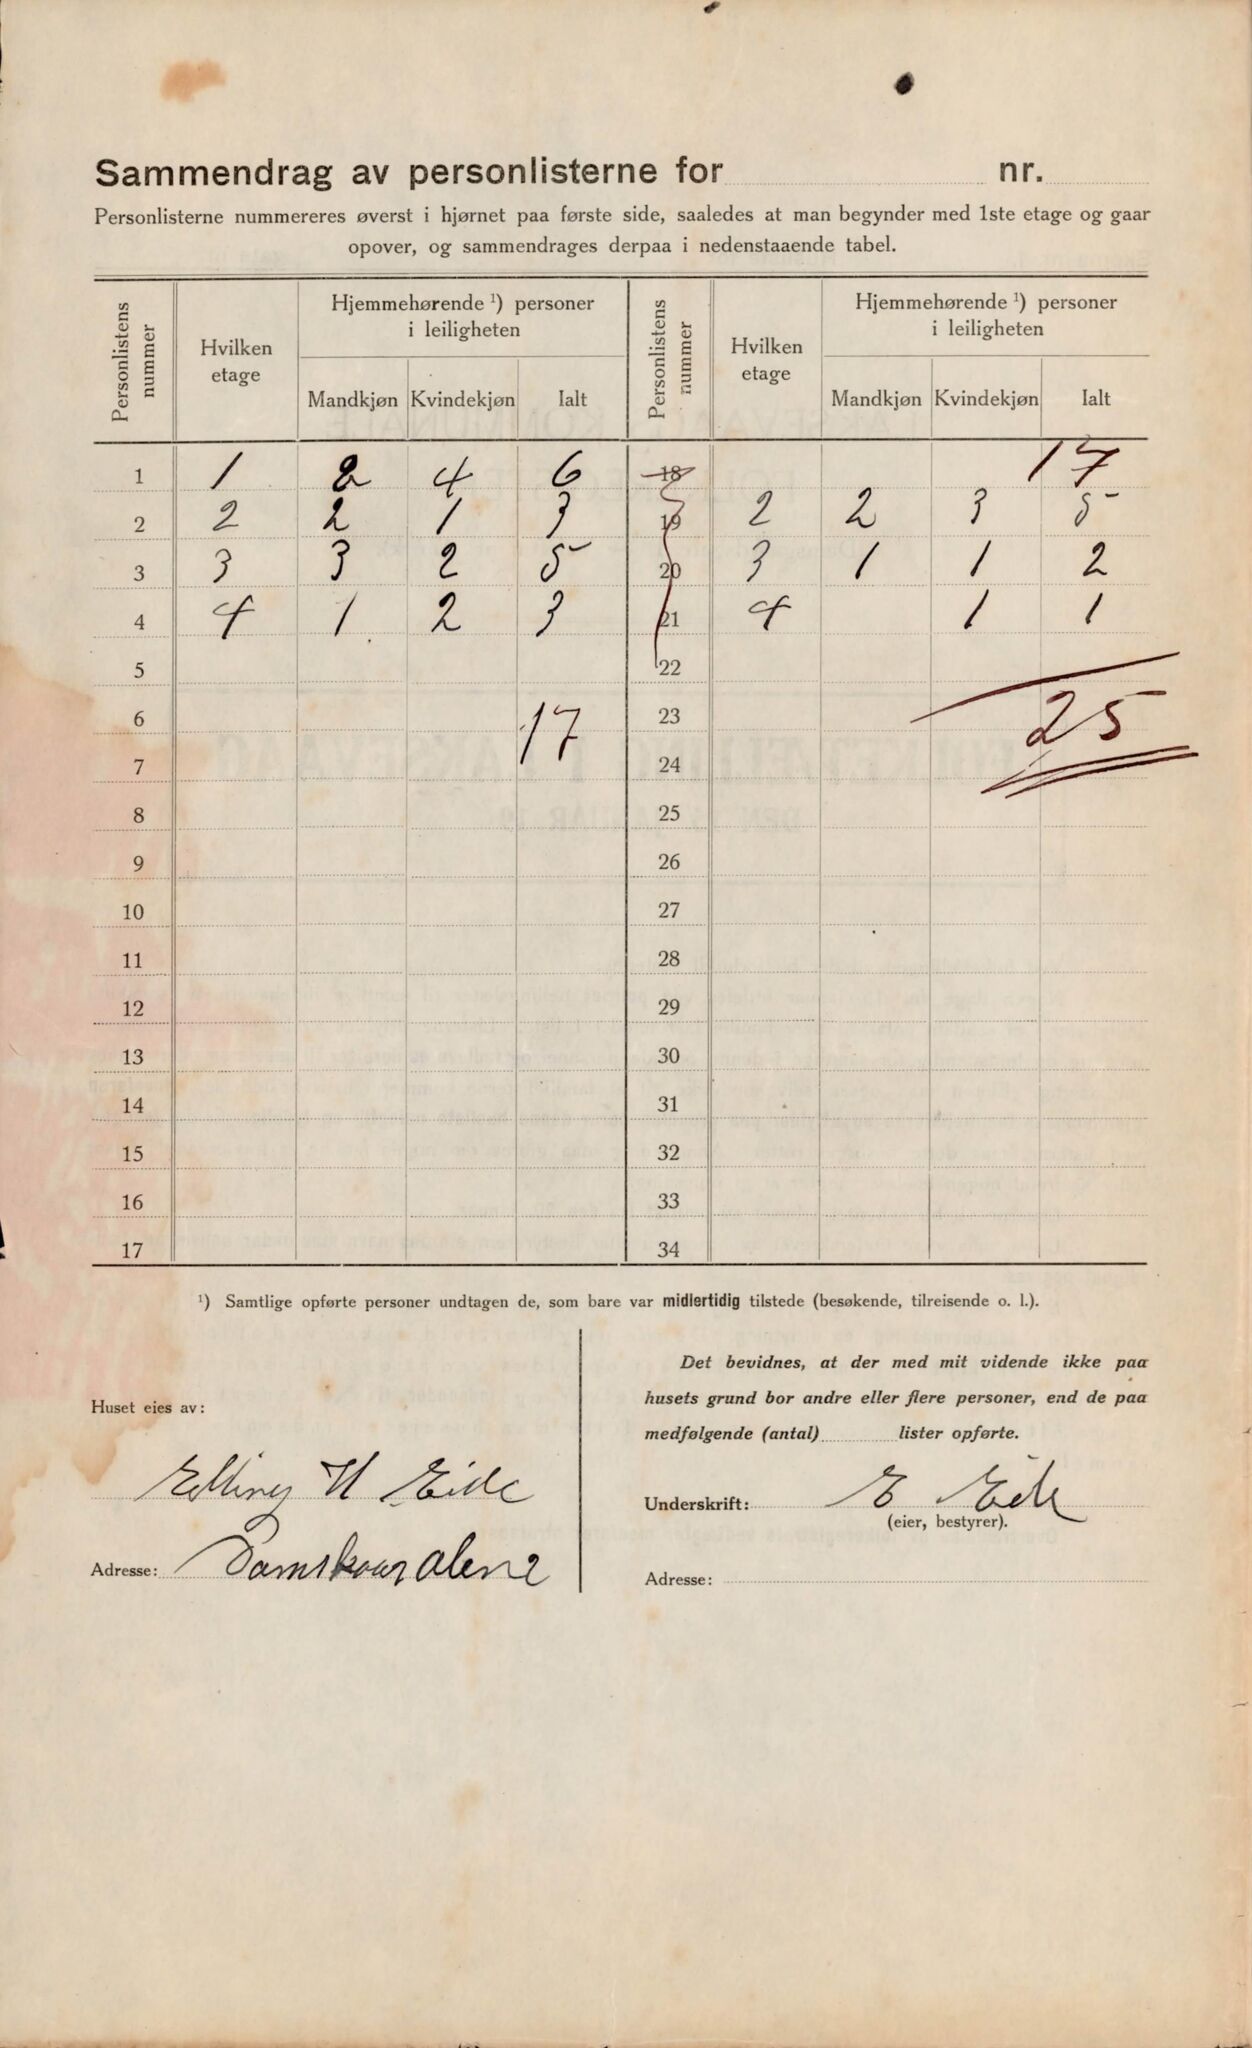 Sammendrag av personlisterne for nr.
Personlisterne nummereres øverst i hjørnet paa første side, saaledes at man begynder med 1ste etage og gaar
opover, og sammendrages derpaa i nedenstaaende tabel.
Personlistens nummer Hvilken etage Hjemmehørende ¹) personer i leiligheten Personlistens nummer Hvilken etage Hjemmehørende ¹) personer i leiligheten
Mandkjøn Kvindekjøn Ialt Mandkjøn Kvindekjøn Ialt
1 1 2 4 6 18 17
2 2 2 1 3 19 2 2 3 5
3 3 3 2 5 20 3 1 1 2
4 4 1 2 3 21 4 1 1
5 22
6 17 23 25
7 24
8 25
9 26
10 27
11 28
12 29
13 30
14 31
15 32
16 33
17 34
¹) Samtlige opførte personer undtagen de, som bare var midlertidig tilstede (besøkende, tilreisende o. l.).
Huset eies av:
H Eide
Adresse:
Det bevidnes, at der med mit vidende ikke paa
husets grund bor andre eller flere personer, end de paa
medfølgende (antal) lister opførte.
Underskrift: E Eide
(eier, bestyrer).
Adresse: